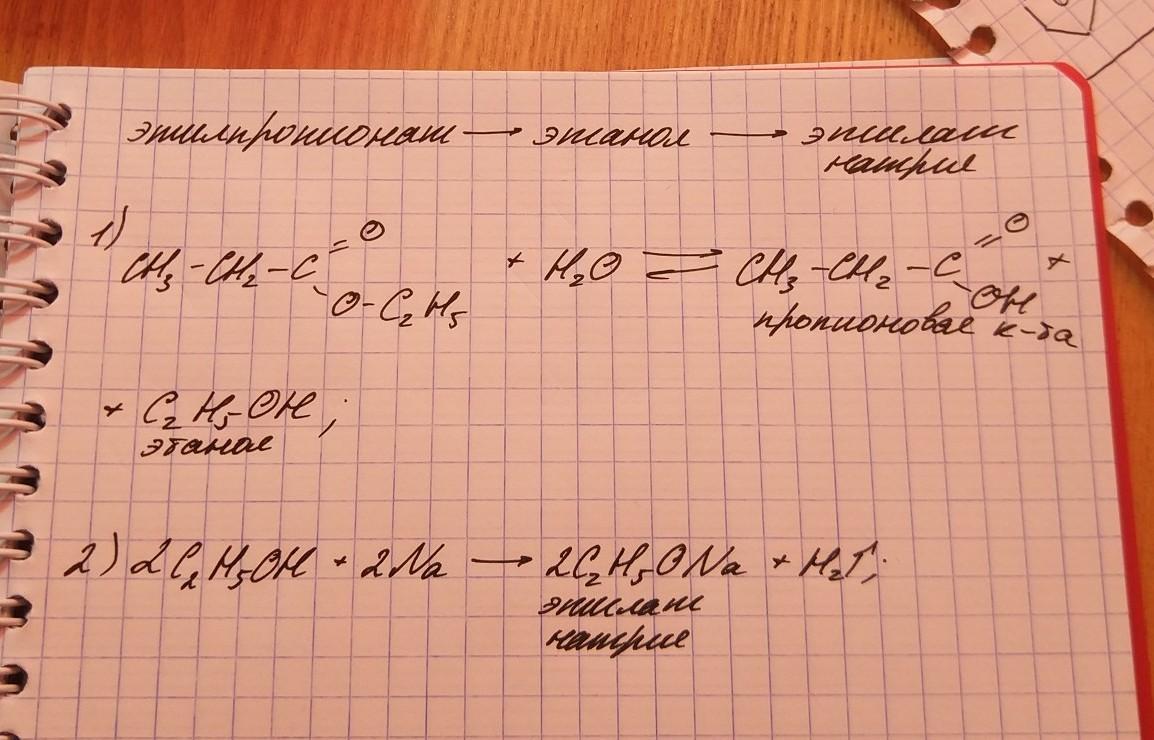 этилпропионат → этанол → этилат
натрия
1) CH₃-CH₂-C=O
O-C₂H₅
+ H₂O ⇄ CH₃-CH₂-C=O
OH +
пропионовая к-та
+ C₂H₅-OH ;
этанол
2) 2C₂H₅OH + 2Na → 2C₂H₅ONa + H₂↑;
этилат
натрия